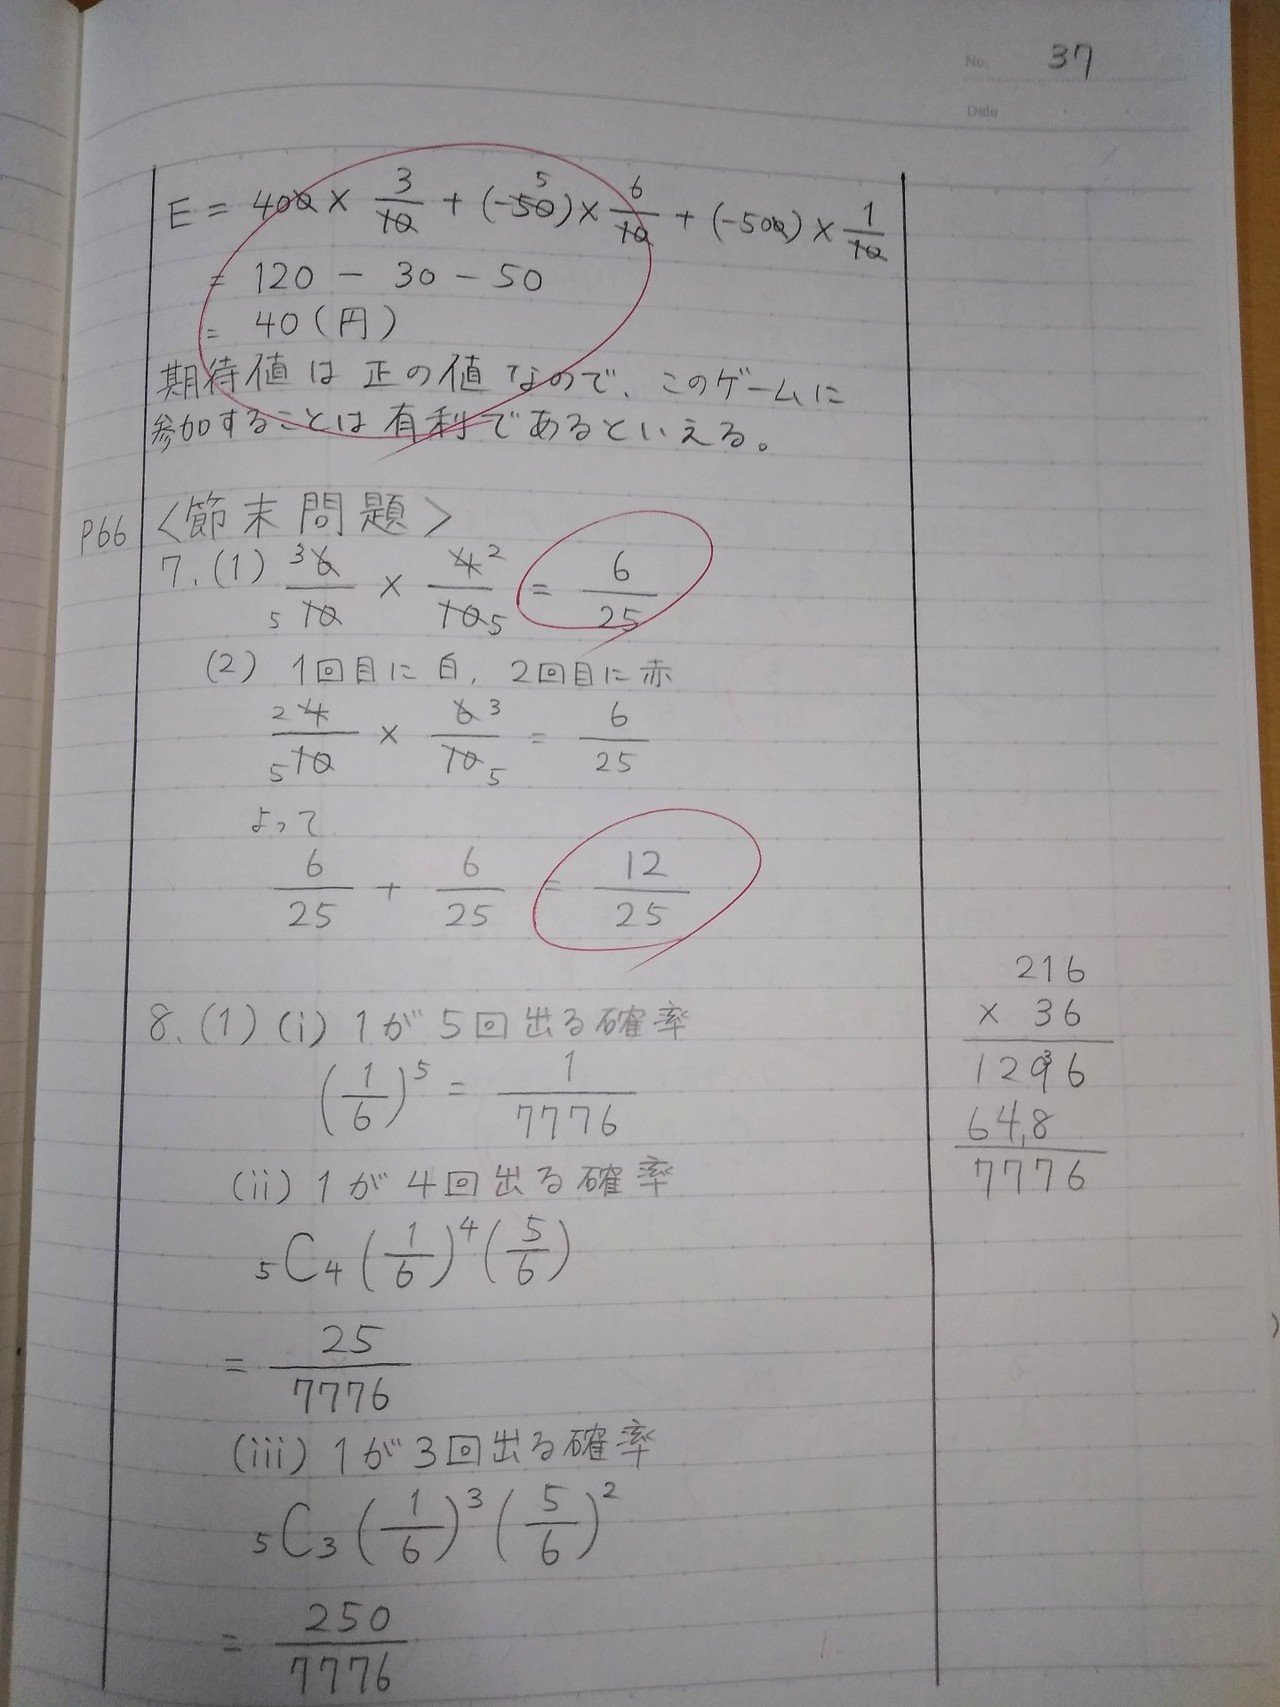 No. 37
Date
E = 400 × 3/10 + (-50)5 × 6/10 + (-500) × 1/10
= 120 - 30 - 50
= 40(円)
期待値は正の値なので、このゲームに
参加することは有利であるといえる。
P66 <節末問題>
7.(1) 3 6/5 10 × 4 2/10 5 = 6/25
(2) 1回目に白, 2回目に赤
2 4/5 10 × 6 3/10 5 = 6/25
よって
6/25 + 6/25 = 12/25
8.(1)(i) 1が5回出る確率
(1/6)^5 = 1/7776
(ii) 1が4回出る確率
5C4(1/6)^4(5/6)
= 25/7776
(iii) 1が3回出る確率
5C3(1/6)^3(5/6)^2
= 250/7776
216
× 36
1296
648
7776